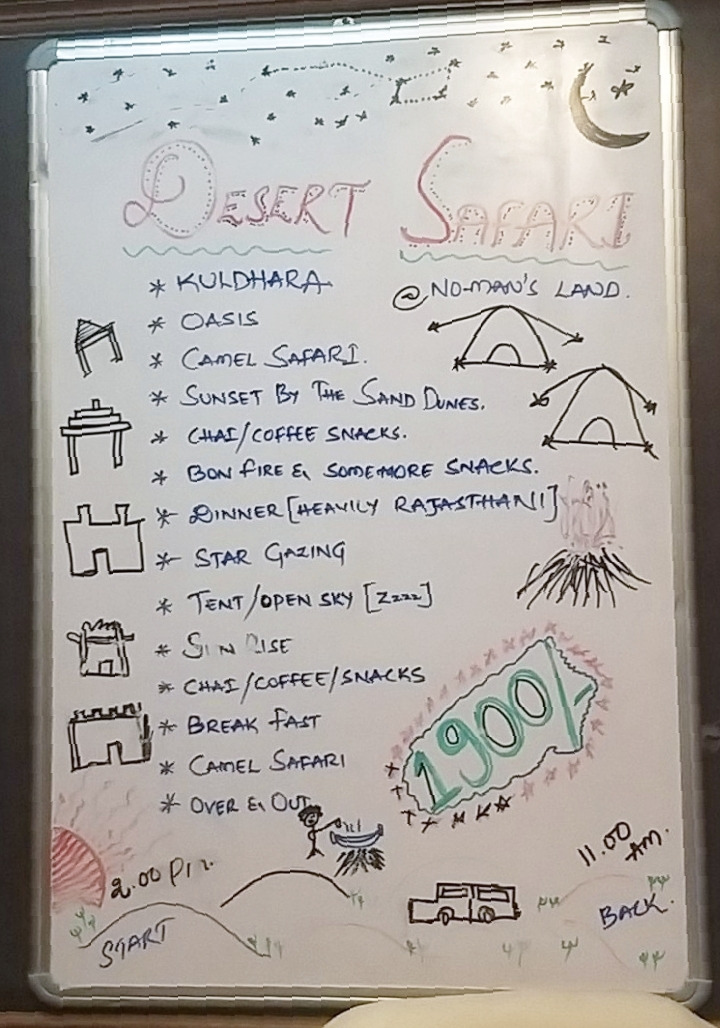 DESERT SAFARI
@ NO-MAN'S LAND.
* KULDHARA
* OASIS
* CAMEL SAFARI.
* SUNSET BY THE SAND DUNES.
* CHAI/COFFEE SNACKS.
* BON FIRE & SOMEMORE SNACKS.
* DINNER [HEAVILY RAJASTHANI]
* STAR GAZING
* TENT/OPEN SKY [Zzzz]
* SUN RISE
* CHAI/COFFEE/SNACKS
* BREAK FAST
* CAMEL SAFARI
* OVER & OUT
1900/-
2.00 PM.
START
11.00 AM.
BACK.